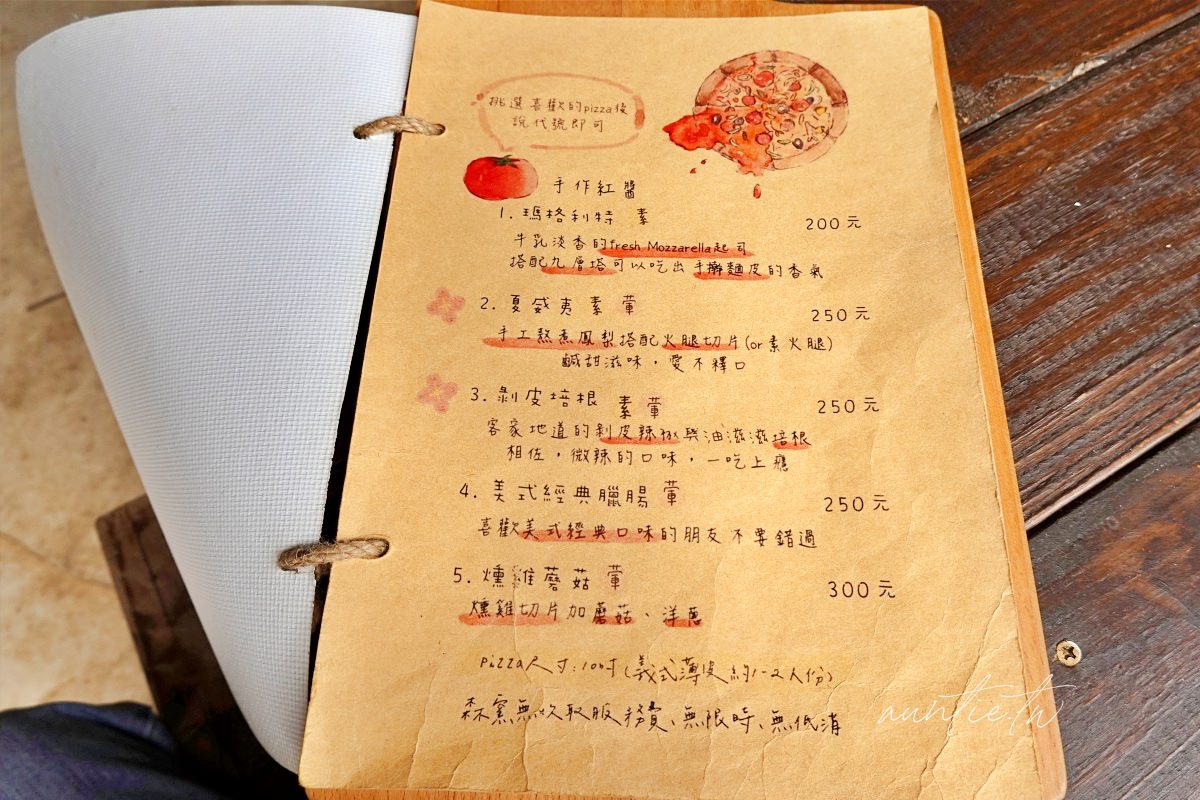 挑選喜歡的pizza後
說代號即可
手作紅醬
1. 瑪格利特 素 200元
牛乳淡香的fresh Mozzarella起司
搭配九層塔可以吃出手擀麵皮的香氣
2. 夏威夷 素 葷 250元
手工熬煮鳳梨搭配火腿切片(or素火腿)
鹹甜滋味，愛不釋口
3. 剝皮培根 素 葷 250元
客家地道的剝皮辣椒與油滋滋培根
相佐，微辣的口味，一吃上癮
4. 美式經典臘腸 葷 250元
喜歡美式經典口味的朋友不要錯過
5. 燻雞蘑菇 葷 300元
燻雞切片加蘑菇、洋蔥
pizza尺寸:10吋(義式薄皮約1-2人份)
森窯無收取服務費、無限時、無低消
auntie.tw